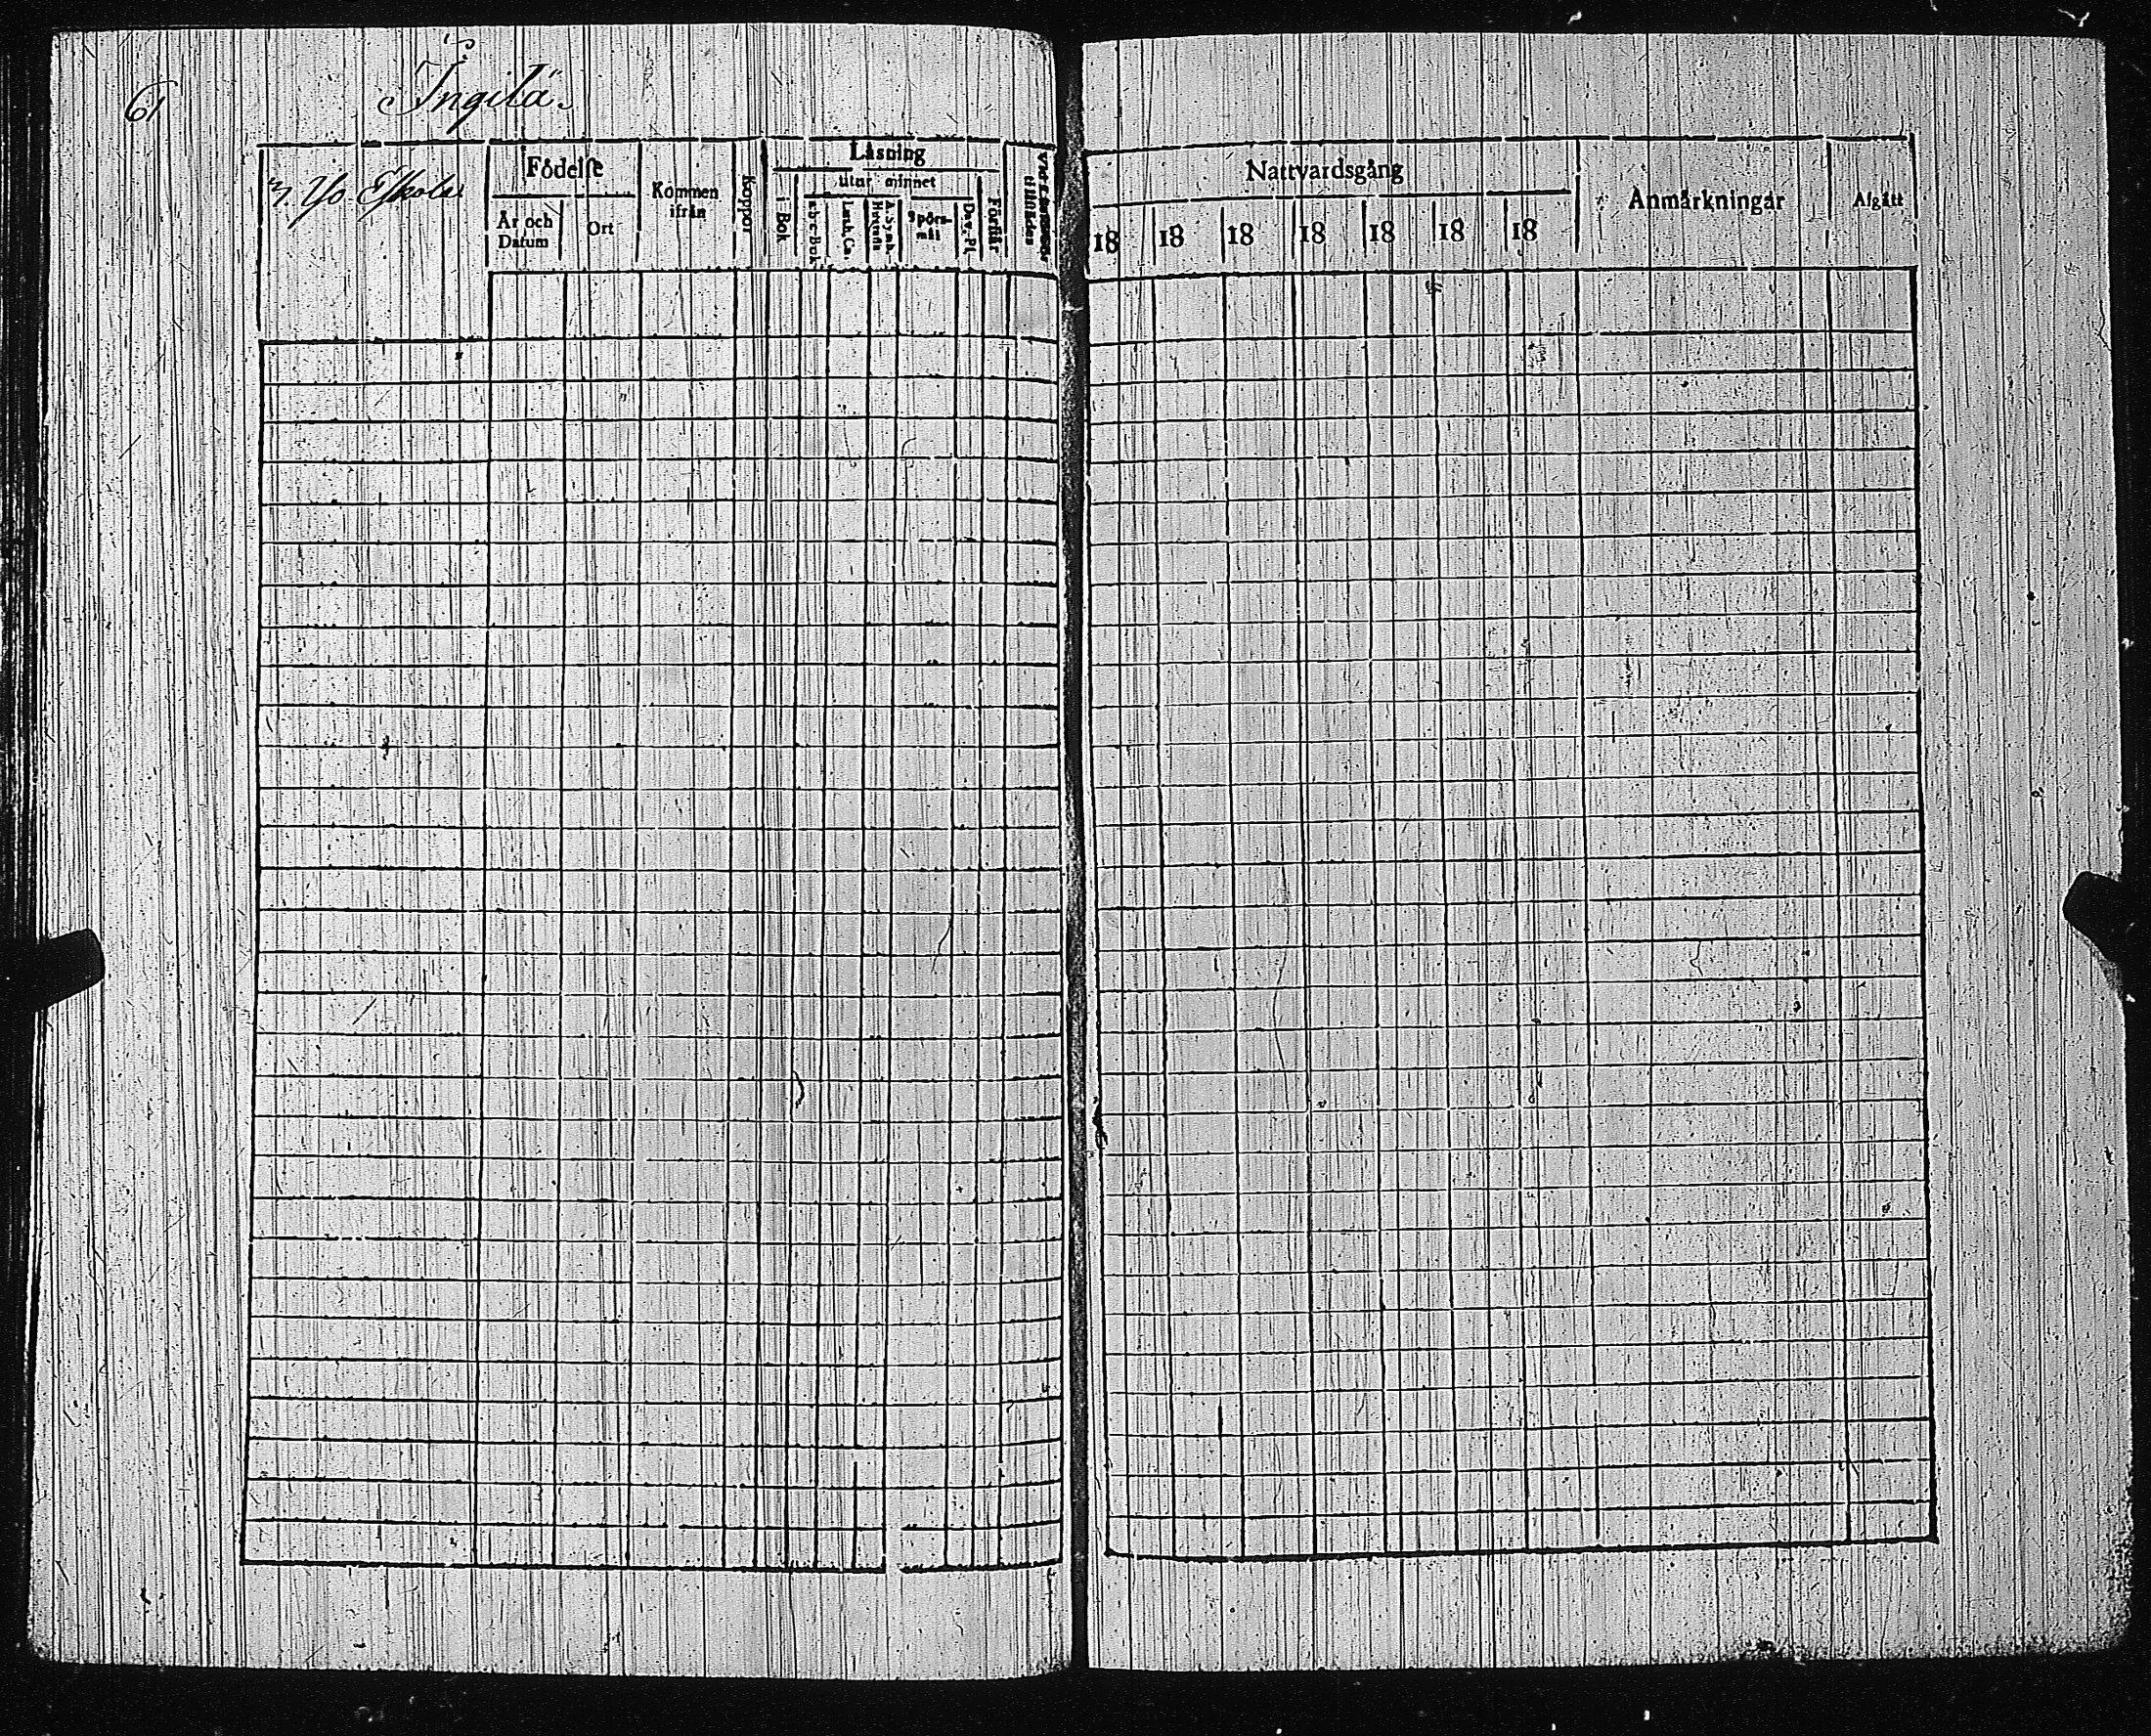 61
Ingilä
Yso Eskola
Födelse
År och
Datum
Ort
Kommen
ifrån
Koppor
Läsning
i Bok
utur minnet
a-b-c-Bok
Luth. Ca.
Spörs-
mål
Dav. Ps.
Förstår
Nattvardsgång
18
18
18
18
18
18
18
Anmärkningar
Afgått